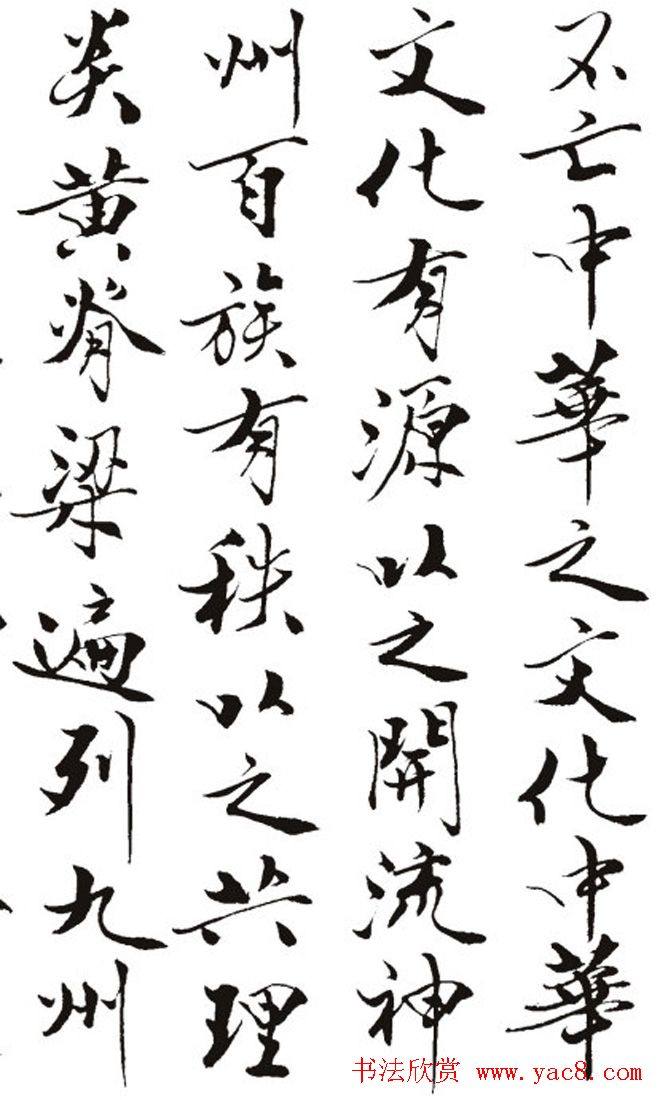 不亡中華之文化中華
文化有源以之開流神
州百族有秩以之共理
炎黄脊梁遍列九州
书法欣赏 www.yac8.com